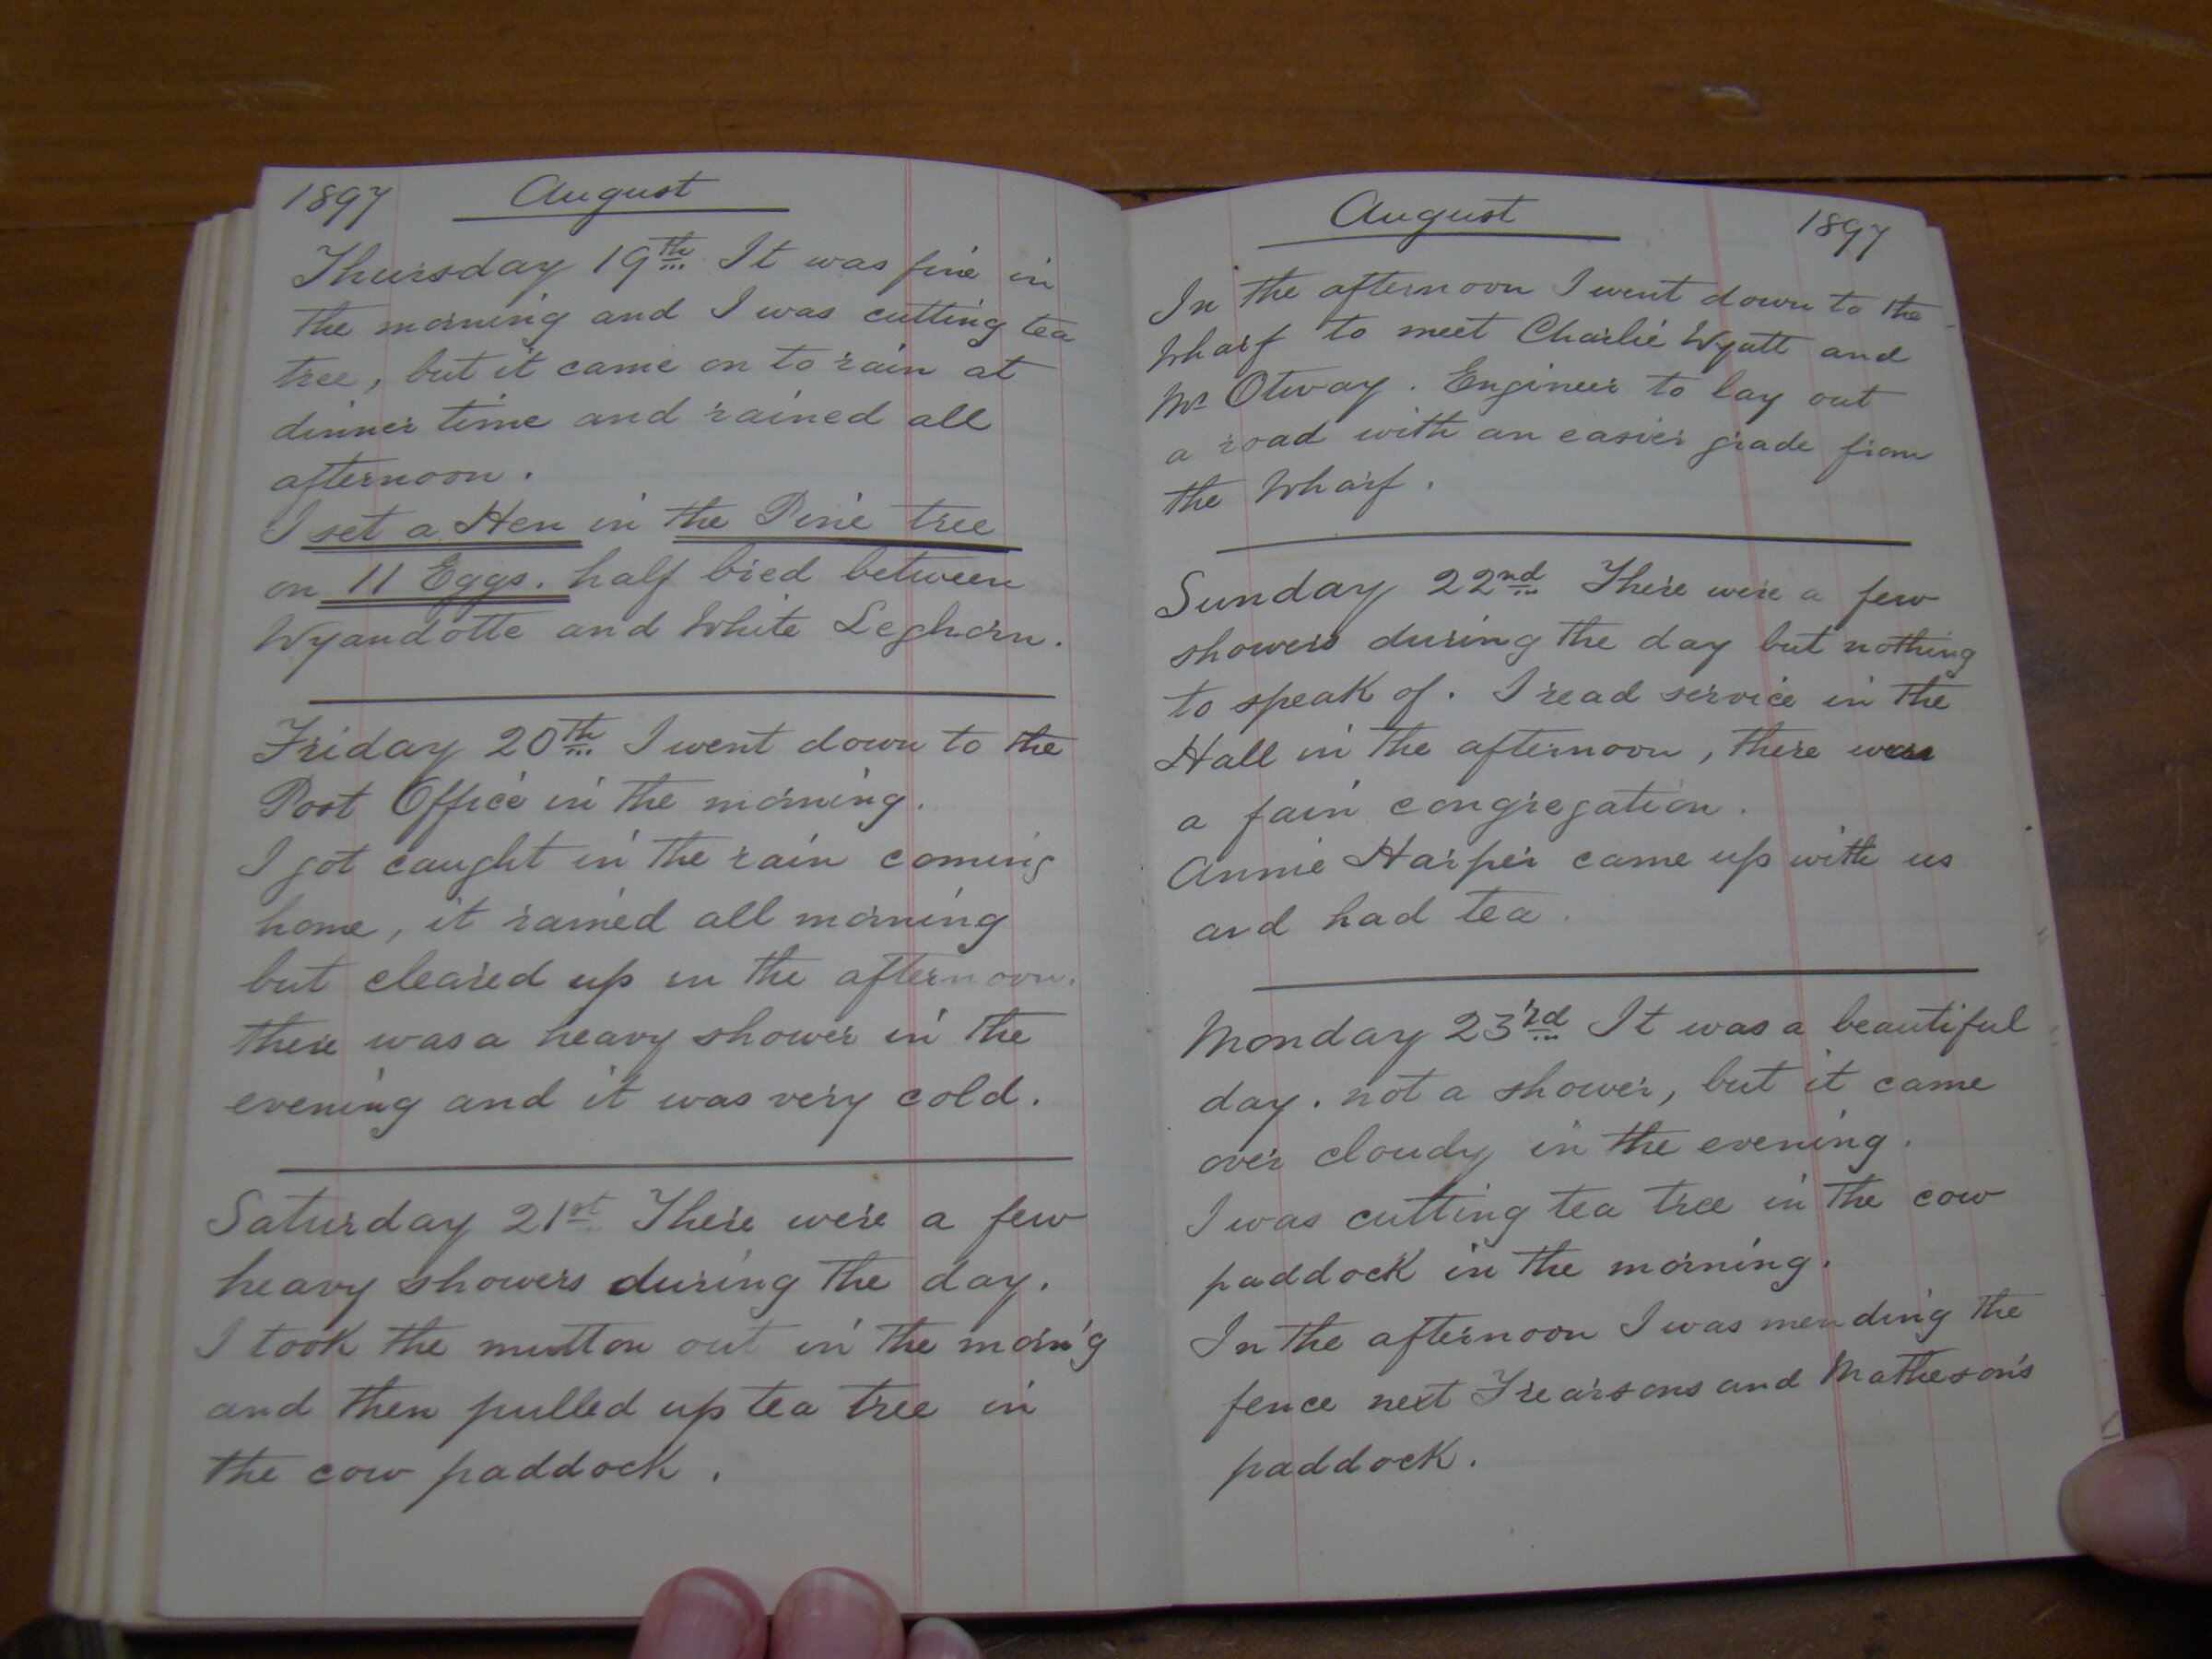 1897 August
Thursday 19th It was fine in
the morning and I was cutting tea
tree, but it came on to rain at
dinner time and rained all
afternoon.
I set a Hen in the Pine tree
on 11 Eggs. half bred between
Wyandotte and White Leghorn.
Friday 20th I went down to the
Post Office in the morning.
I got caught in the rain coming
home, it rained all morning
but cleared up in the afternoon.
there was a heavy shower in the
evening and it was very cold.
Saturday 21st There were a few
heavy showers during the day.
I took the mutton out in the morn'g
and then pulled up tea tree in
the cow paddock.
August 1897
In the afternoon I went down to the
Wharf to meet Charlie Wyatt and
Mr Otway. Engineer to lay out
a road with an easier grade from
the Wharf.
Sunday 22nd There were a few
showers during the day but nothing
to speak of. I read service in the
Hall in the afternoon, there was
a fair congregation.
Annie Harper came up with us
and had tea.
Monday 23rd It was a beautiful
day. not a shower, but it came
over cloudy in the evening.
I was cutting tea tree in the cow
paddock in the morning.
In the afternoon I was mending the
fence next Frearsons and Matheson's
paddock.